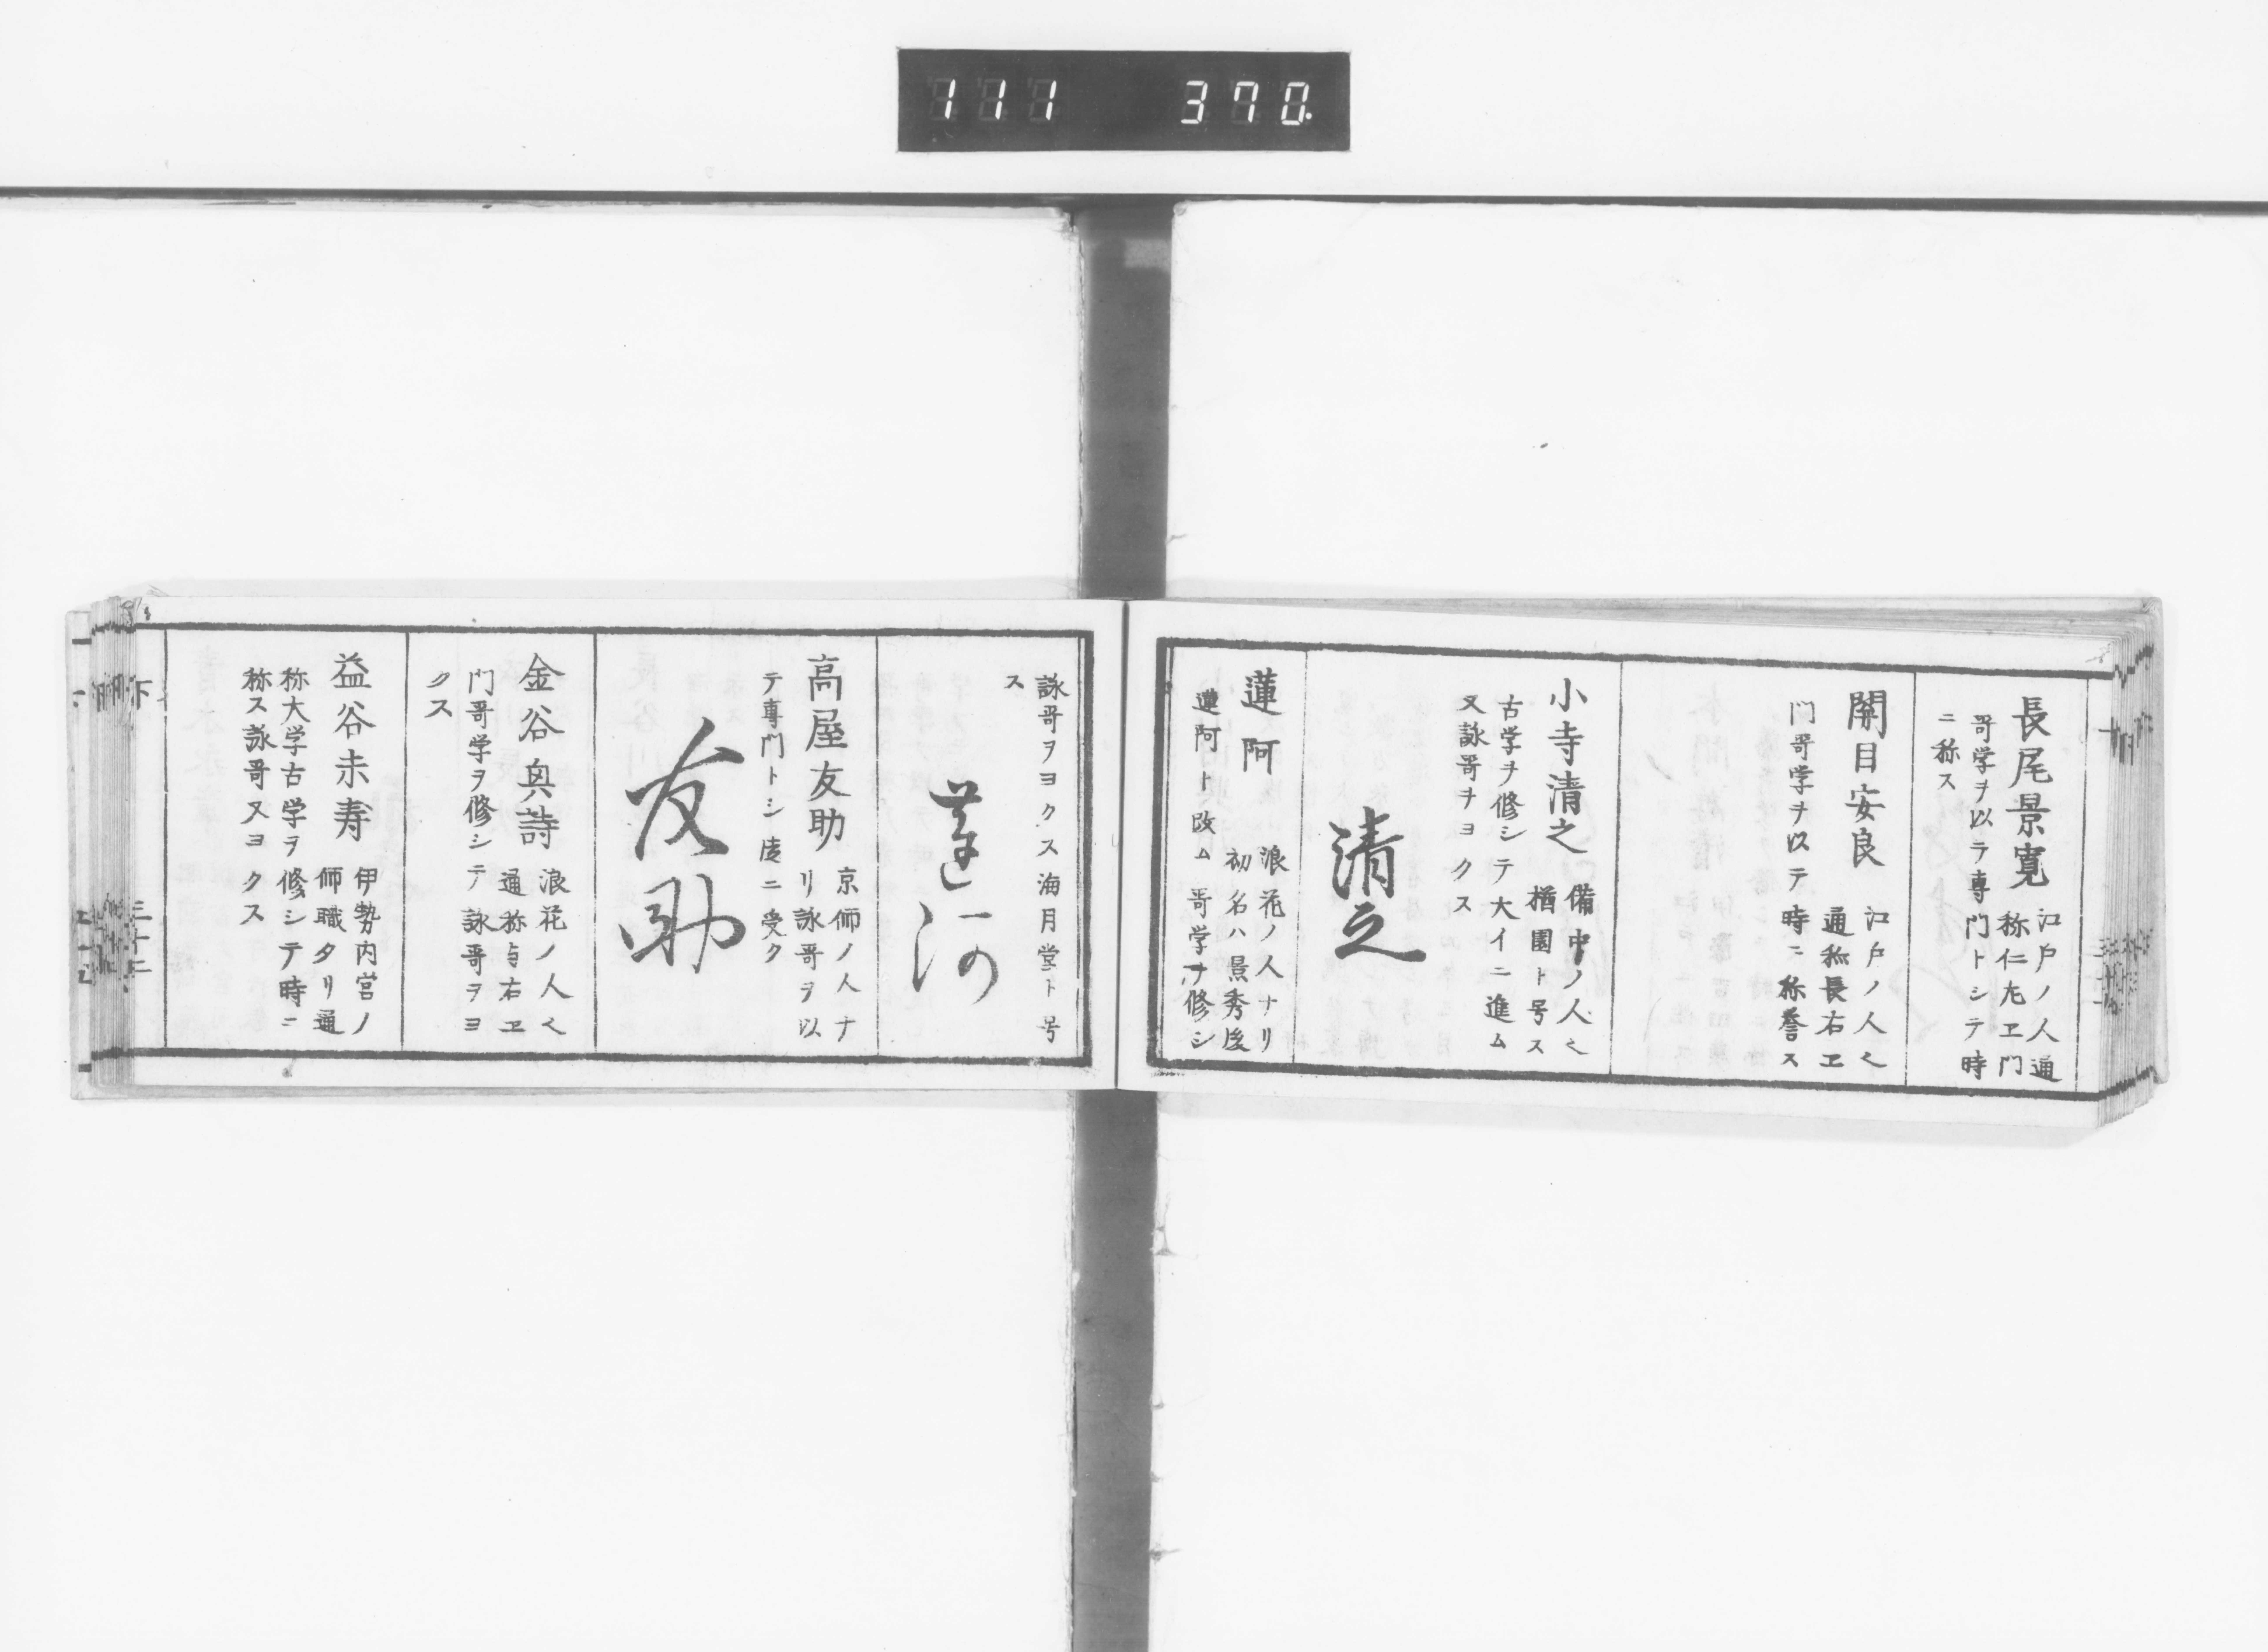 111 370.
長尾景寛
江戸ノ人通
称仁左ヱ門
哥学ヲ以テ専門トシテ時
ニ称ス
関目安良
江戸ノ人也
通称長右ヱ
門哥学ヲ以テ時ニ称誉ス
小寺清之
備中ノ人也
楢園ト号ス
古学ヲ修シテ大イニ進ム
又詠哥ヲヨクス
清之
蓮阿
浪花ノ人ナリ
初名ハ景秀後
蓮阿ト改ム哥学ヲ修シ
詠哥ヲヨクス海月堂ト号
ス
蓮阿
高屋友助
京師ノ人ナ
リ詠哥ヲ以
テ専門トシ達ニ受ク
友助
金谷與詩
浪花ノ人也
通称与右ヱ
門哥学ヲ修シテ詠哥ヲヨ
クス
益谷末寿
伊勢内宮ノ
師職タリ通
称大学古学ヲ修シテ時ニ
称ス詠哥又ヨクス
下
三十二